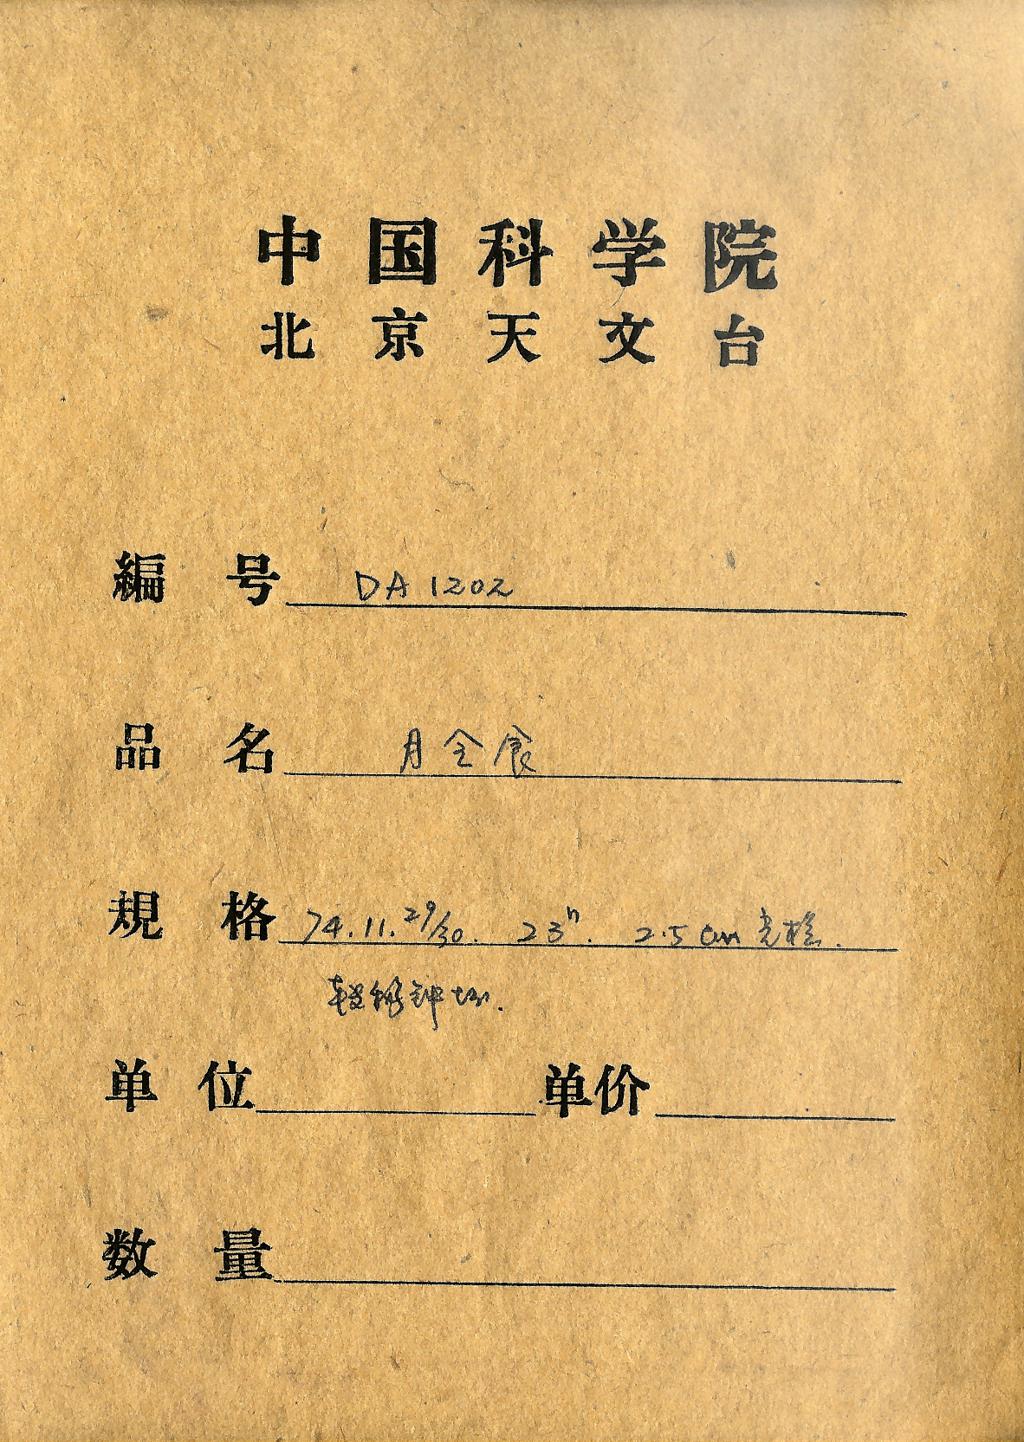 中国科学院
北京天文台
編号 DA1202
品名 月全食
規格 74.11.29/30. 23h. 2.5cm
单位 单价
数量